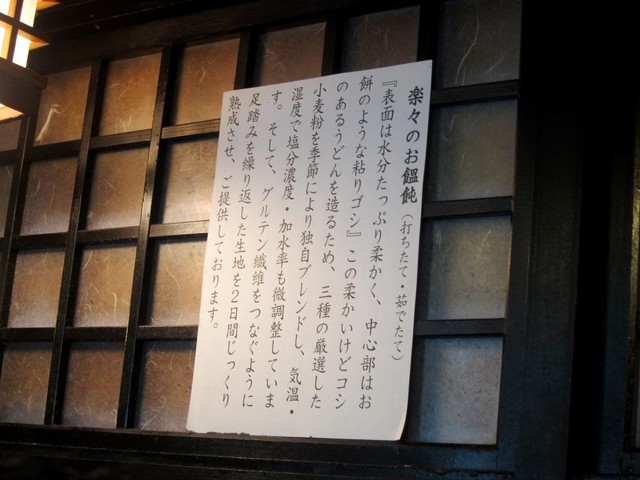 楽々のお饂飩（打ちたて・茹でたて）
『表面は水分たっぷり柔かく、中心部はお
餅のような粘りゴシ』この柔かいけどコシ
のあるうどんを造るため、三種の厳選した
小麦粉を季節により独自ブレンドし、気温・
湿度で塩分濃度・加水率も微調整していま
す。そして、グルテン繊維をつなぐように
足踏みを繰り返した生地を２日間じっくり
熟成させ、ご提供しております。